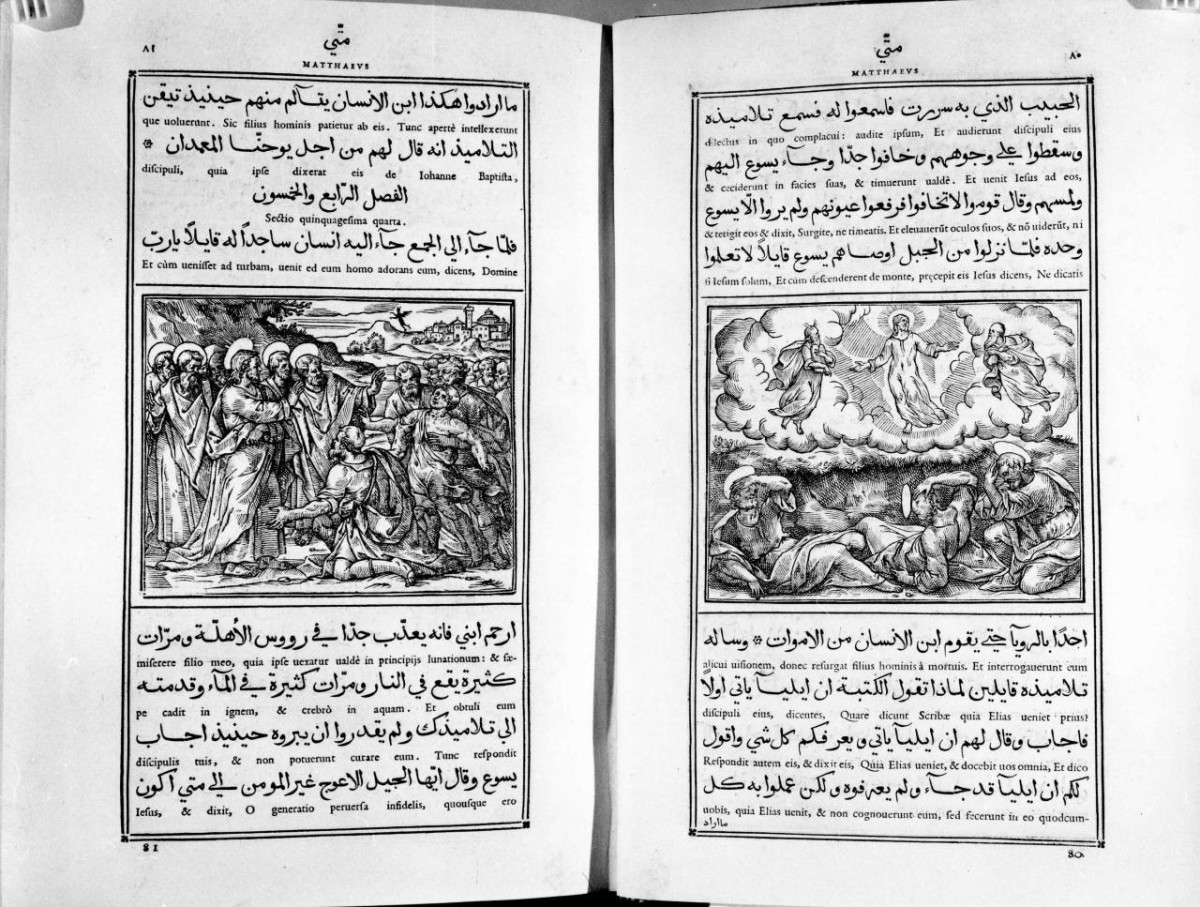 ٨٠
متّي
MATTHAEVS
الحبيب الذي به سررت فاسمعوا له فسمع تلاميذه
dilectus in quo complacui: audite ipsum, Et audierunt discipuli eius
وسقطوا علي وجوههم وخافوا جدّا وجآء يسوع اليهم
& ceciderunt in facies suas, & timuerunt ualdè. Et uenit Iesus ad eos,
ولمسهم وقال قوموا لاتخافوا فرفعوا عيونهم ولم يروا الّا يسوع
& tetigit eos & dixit, Surgite, ne timeatis. Et eleuauerũt oculos suos, & nõ uiderũt, ni
وحده فلمّا نزلوا من الجبل اوصاهم يسوع قايلاً لاتعلموا
si Iesum solum, Et cùm descenderent de monte, pręcepit eis Iesus dicens, Ne dicatis
احدًا بالرويآ حتي يقوم ابن الانسان من الاموات * وساله
alicui uisionem, donec resurgat filius hominis à mortuis. Et interrogauerunt eum
تلاميذه قايلين لماذا تقول الكتبة ان ايليآ ياتي اولًا
discipuli eius, dicentes, Quare dicunt Scribæ quia Elias ueniet prius?
فاجاب وقال لهم ان ايليآ ياتي ويعرفكم كل شي واقول
Respondit autem eis, & dixit eis, Quia Elias ueniet, & docebit uos omnia, Et dico
لكم ان ايليآ قد جآء ولم يعرفوه ولكن عملوا به كل
uobis, quia Elias uenit, & non cognouerunt eum, sed fecerunt in eo quodcum-
مااراد
80
٨١
متّي
MATTHAEVS
ما ارادوا هكذا ابن الانسان يتآلم منهم حينيذ تيقن
que uoluerunt. Sic filius hominis patietur ab eis. Tunc apertè intellexerunt
التلاميذ انه قال لهم من اجل يوحنّا المعمدان *
discipuli, quia ipse dixerat eis de Iohanne Baptista,
الفصل الرّابع والخمسون
Sectio quinquagesima quarta.
فلمّا جآء الي الجمع جآء اليه انسان ساجدًا له قايلاً يارب
Et cùm uenisset ad turbam, uenit ad eum homo adorans eum, dicens, Domine
ارحم ابني فانه يعذّب جدّا في رووس الأهلّة ومرّات
miserere filio meo, quia ipse uexatur ualdè in principijs lunationum: & sæ-
كثيرة يقع في النار ومرّات كثيرة في المآء وقدمته
pe cadit in ignem, & crebrò in aquam. Et obtuli eum
الي تلاميذك ولم يقدروا ان يبروه حينيذ اجاب
discipulis tuis, & non potuerunt curare eum. Tunc respondit
يسوع وقال ايّها الجيل الاعوج غير المومن الي متي اكون
Iesus, & dixit, O generatio peruersa infidelis, quousque ero
81